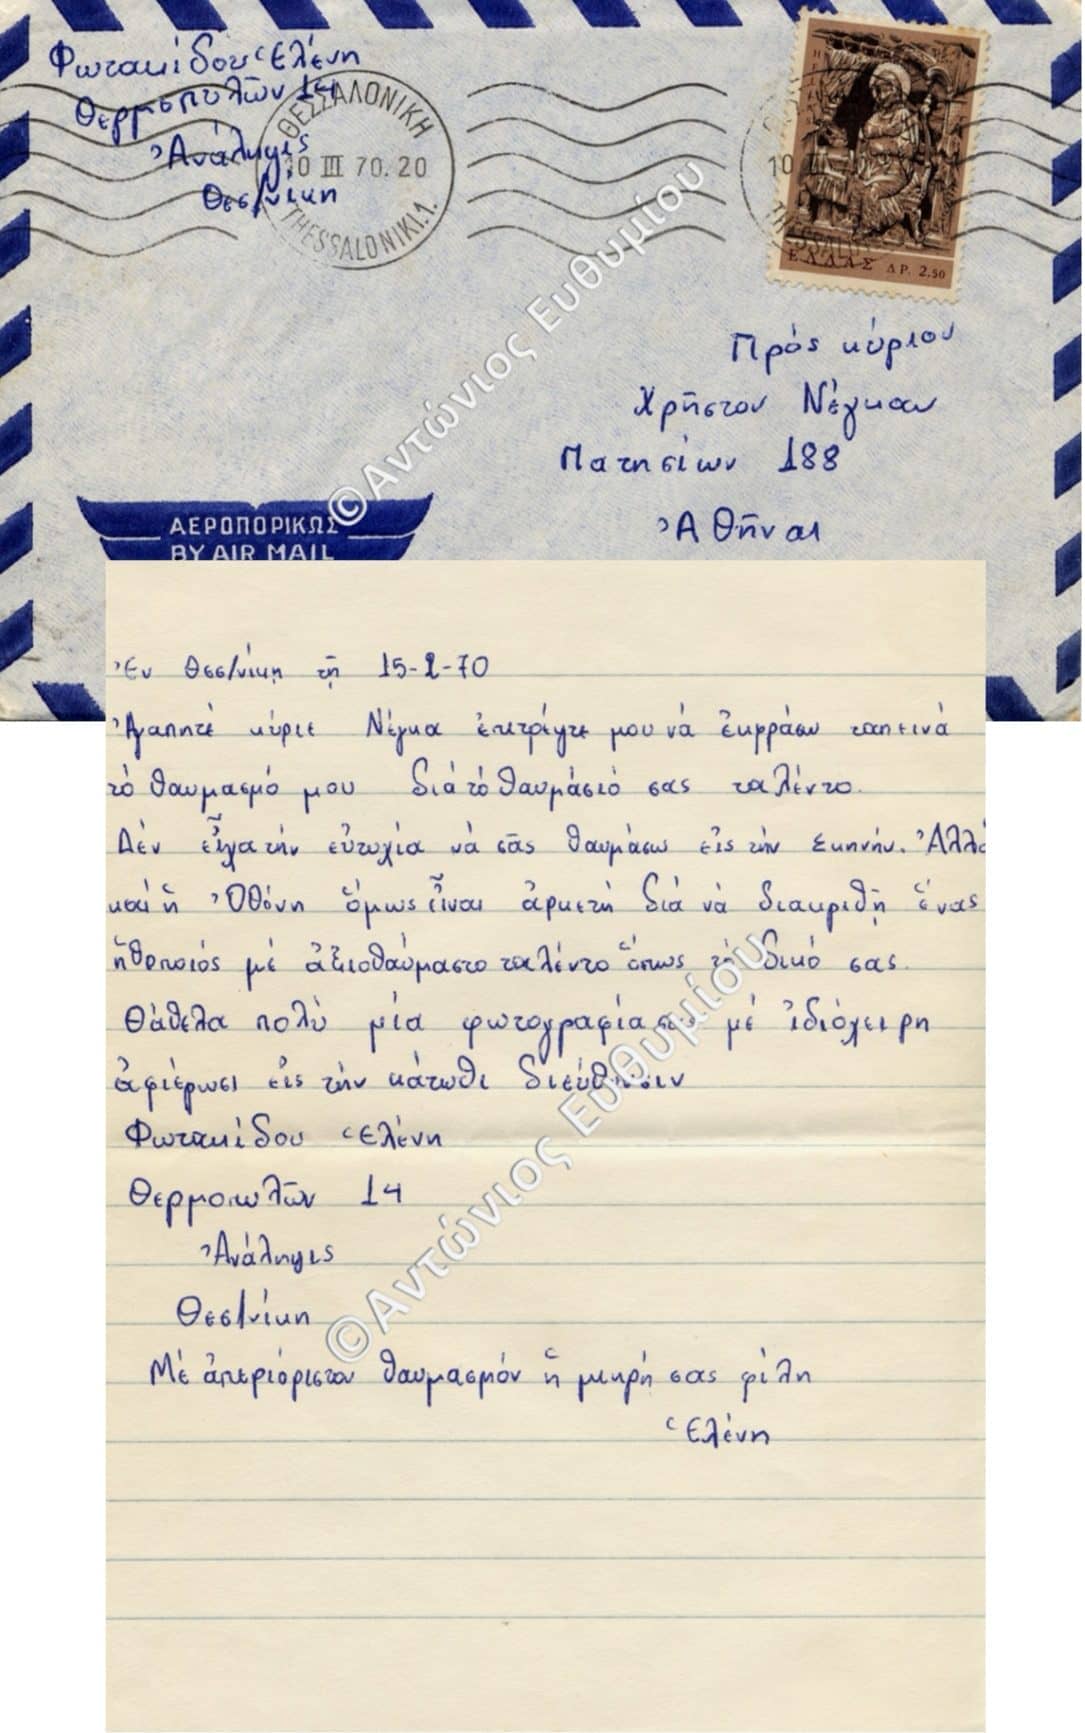 Φωτακίδου Ἑλένη
Θερμοπυλῶν 14
Ἀνάληψις
Θεσ/νίκη
ΘΕΣΣΑΛΟΝΙΚΗ
10 III 70.20
THESSALONIKI.1.
ΕΛΛΑΣ ΔΡ. 2,50
Πρός κύριον
Χρῆστον Νέγκαν
Πατησίων 188
Ἀθῆναι
ΑΕΡΟΠΟΡΙΚΩΣ
BY AIR MAIL
©Αντώνιος Ευθυμίου
Ἐν Θεσ/νίκῃ τῇ 15-2-70
Ἀγαπητέ κύριε Νέγκα ἐπιτρέψτε μου νά ἐκφράσω ταπεινά
τό θαυμασμό μου διά τό θαυμάσιό σας ταλέντο.
Δέν εἶχα τήν εὐτυχία νά σᾶς θαυμάσω εἰς τήν σκηνήν. Ἀλλά
καί ἡ Ὀθόνη ὅμως εἶναι ἀρκετή διά νά διακριθῇ ἕνας
ἠθοποιός μέ ἀξιοθαύμαστο ταλέντο ὅπως τό δικό σας.
Θάθελα πολύ μία φωτογραφία σας μέ ἰδιόχειρη
ἀφιέρωσι εἰς τήν κάτωθι διεύθυνσιν
Φωτακίδου Ἑλένη
Θερμοπυλῶν 14
Ἀνάληψις
Θεσ/νίκη
Μέ ἀπεριόριστον θαυμασμόν ἡ μικρή σας φίλη
Ἑλένη
©Αντώνιος Ευθυμίου